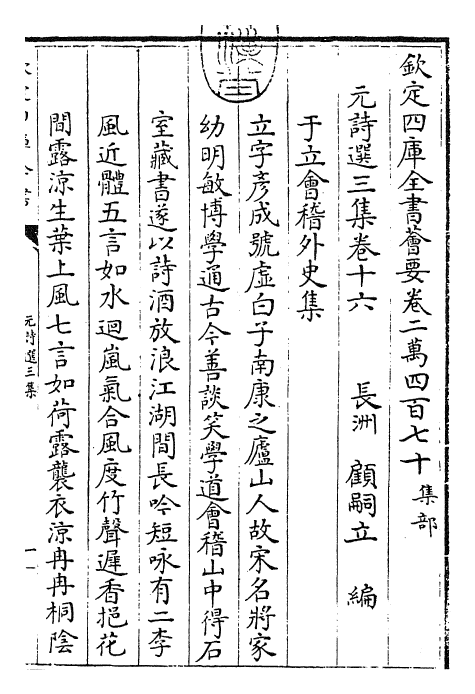 欽定四庫全書薈要卷二萬四百七十 集部
元詩選三集卷十六 長洲 顧嗣立 編
于立會稽外史集
立字彥成號虛白子南康之廬山人故宋名將家
幼明敏博學通古今善談笑學道會稽山中得石
室藏書遂以詩酒放浪江湖間長吟短咏有二李
風近體五言如水迴嵐氣合風度竹聲遲香挹花
間露涼生葉上風七言如荷露襲衣涼冉冉桐陰
元詩選三集
一